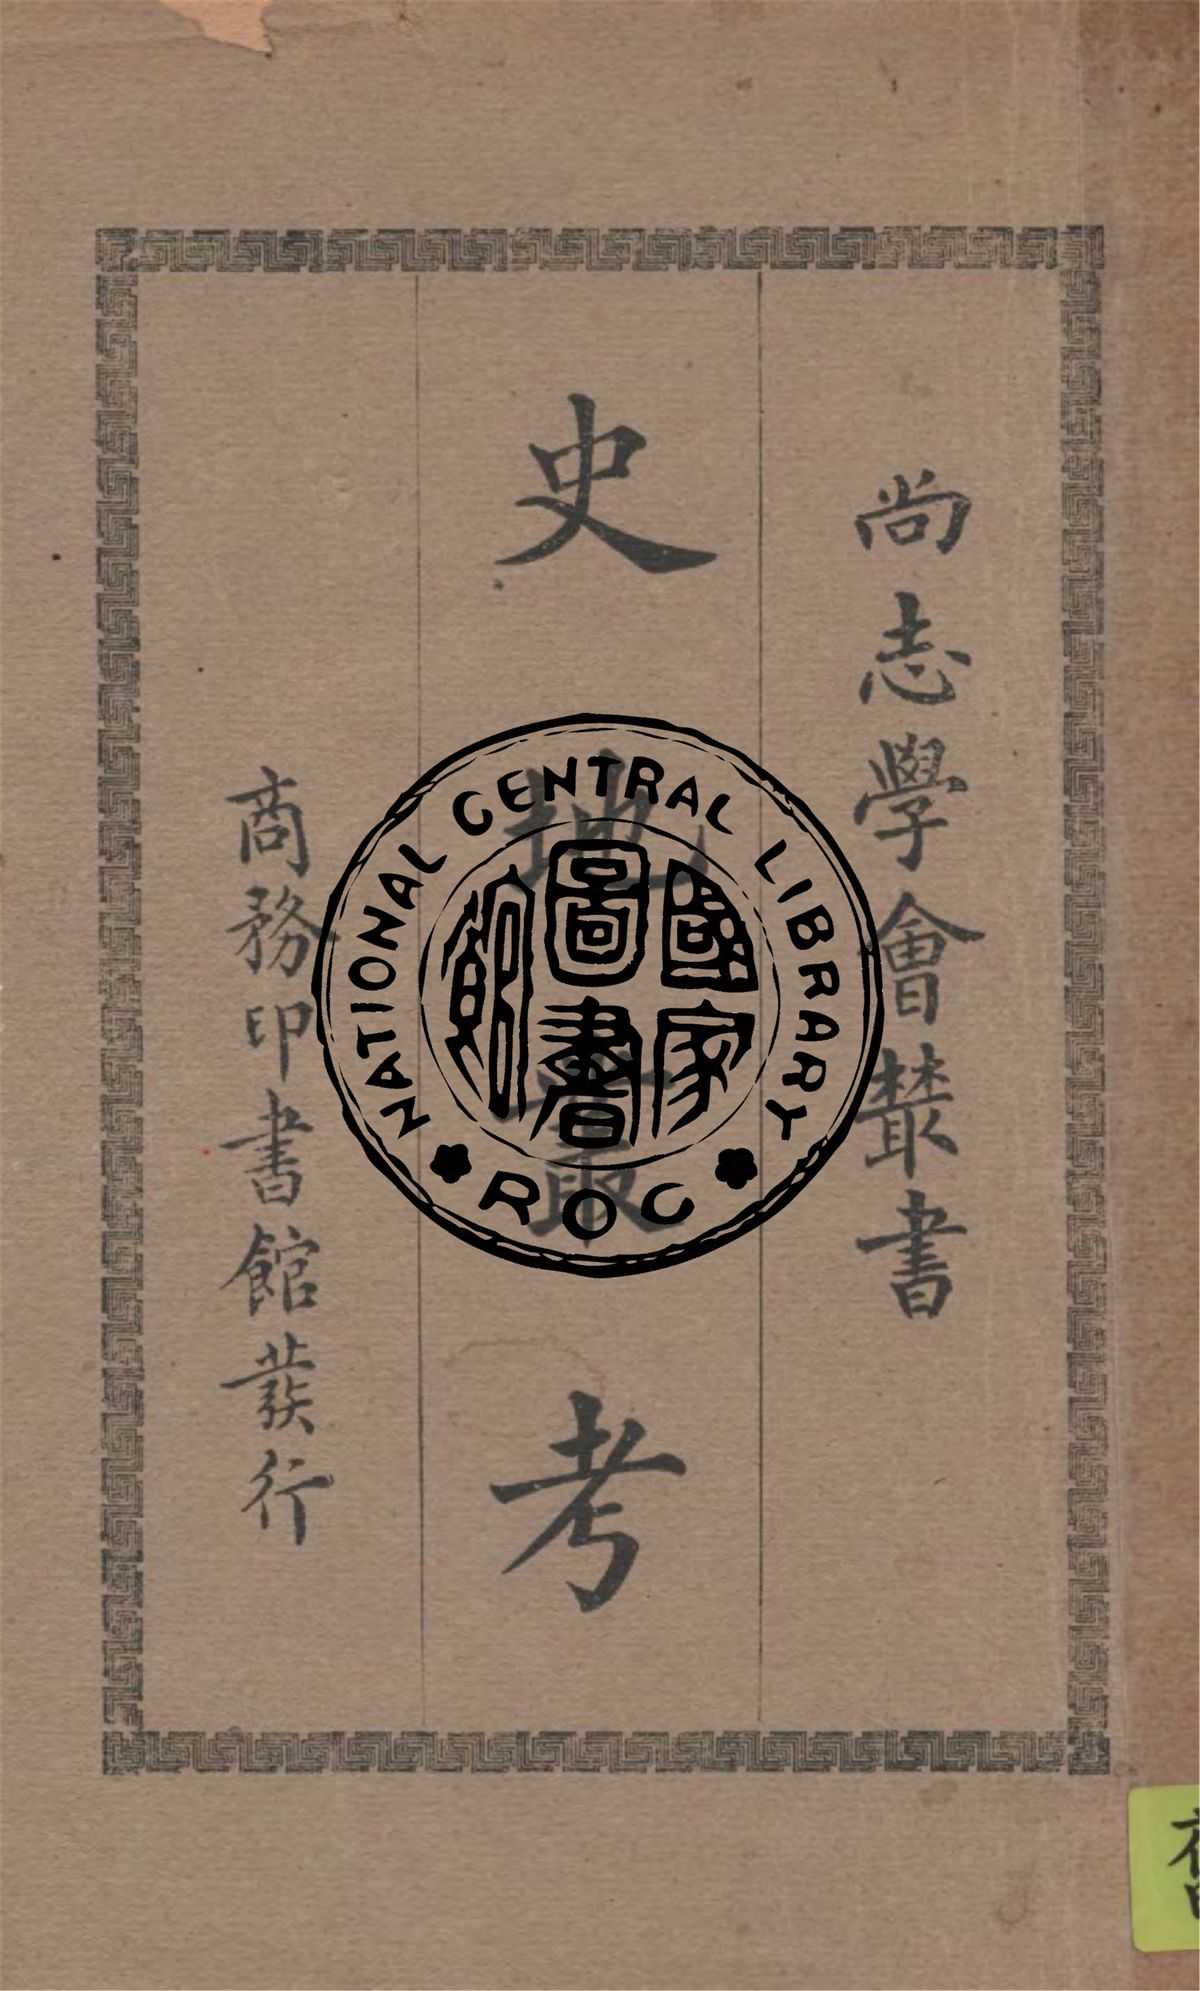 尚志學會叢書
史地叢考
商務印書館發行
NATIONAL CENTRAL LIBRARY
國家
圖書
館
ROC